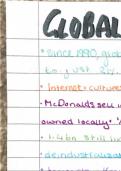 GLOBAL
• Since 1990, glo
to just 2
• Internet = culture
• McDonalds sell i
owned locally •
• 1.4bn still li
• deindustrialisa